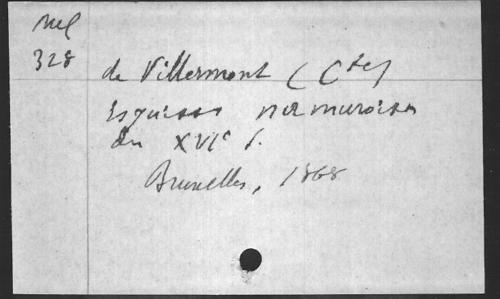 Mel
328
de Villermont (Cte)
Esquisses namuroises
du XVIe s.
Bruxelles, 1868